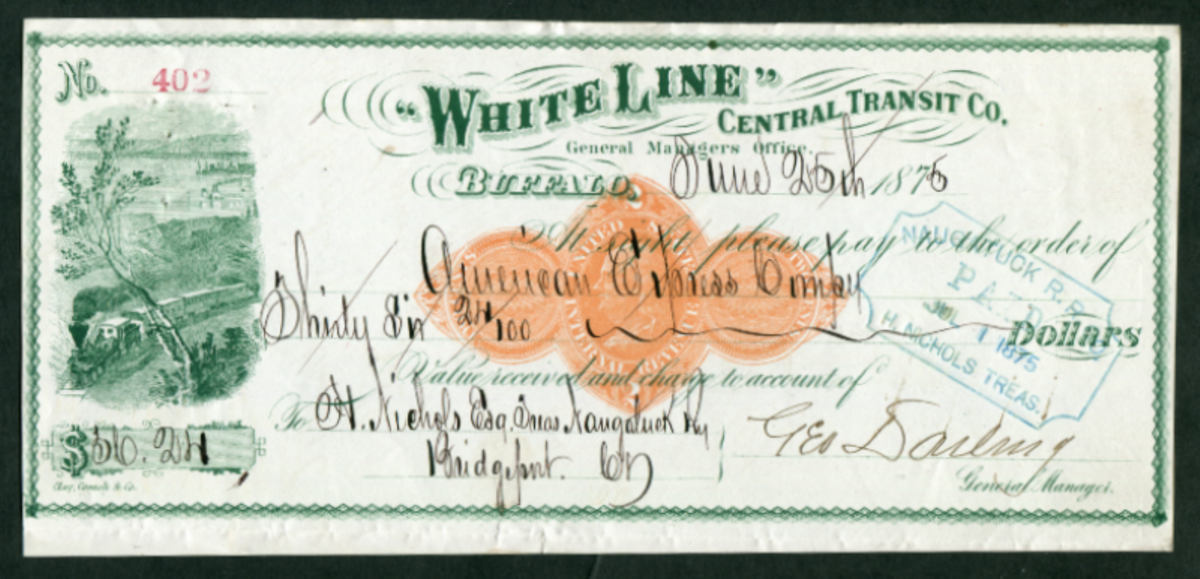 No. 402
"WHITE LINE"
CENTRAL TRANSIT CO.
General Managers Office.
BUFFALO, June 25th 1875
At sight, please pay to the order of
American Express Compy
Thirty Six 24/100 Dollars
Value received and charge to account of
To H. Nichols Esq. Treas. Naugatuck Ry
Bridgeport. Ct
$36.24
Geo Darling
General Manager.
Clay, Cosack & Co.
NAUGATUCK R.R.
PAID
JUL 1 1875
H. NICHOLS TREAS.
UNITED STATES
INTERNAL REVENUE